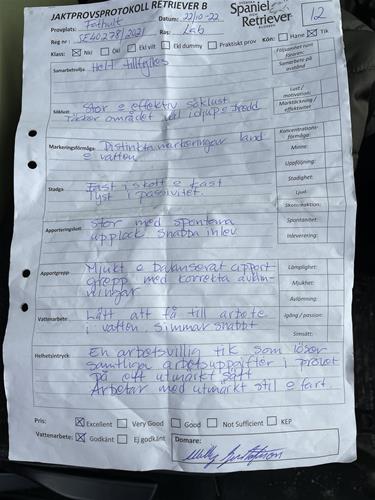 JAKTPROVSPROTOKOLL RETRIEVER B
Spaniel
Retriever
12
Provplats: Datum: 22/10-22
Reg nr: SE40278/2021 Ras: Lab Kön: Hane Tik
Klass: Nkl Ökl Ekl vilt Ekl dummy Praktiskt prov
Samarbetsvilja Helt tillfreds
Söklust: Stor o effektiv söklust
Täcker området väl i djup o bredd
Lust / motivation:
Marktäckning / effektivitet:
Markeringsförmåga: Distinkta markeringar land
o vatten
Koncentrations-förmåga:
Minne:
Uppföljning:
Stadga Fast i skott o kast
Tyst i passivitet.
Stadighet:
Ljud:
Skottreaktion:
Apporteringslust: Stor med spontana
upplock snabba inlev
Spontanitet:
Inleverering:
Apportgrepp: Mjukt o balanserat apport
grepp med korrekta avläm-
ningar
Lämplighet:
Mjukhet:
Avlämning:
Vattenarbete: Lätt att få till arbete
i vatten. Simmar snabbt
Igång / passion:
Simsätt:
Helhetsintryck: En arbetsvillig tik som löser
samtliga arbetsuppgifter i provet
på ett utmärkt sätt
Arbetar med utmärkt stil o fart
Pris: Excellent Very Good Good Not Sufficient KEP
Vattenarbete: Godkänt Ej godkänt Domare:
Willy Gustafsson